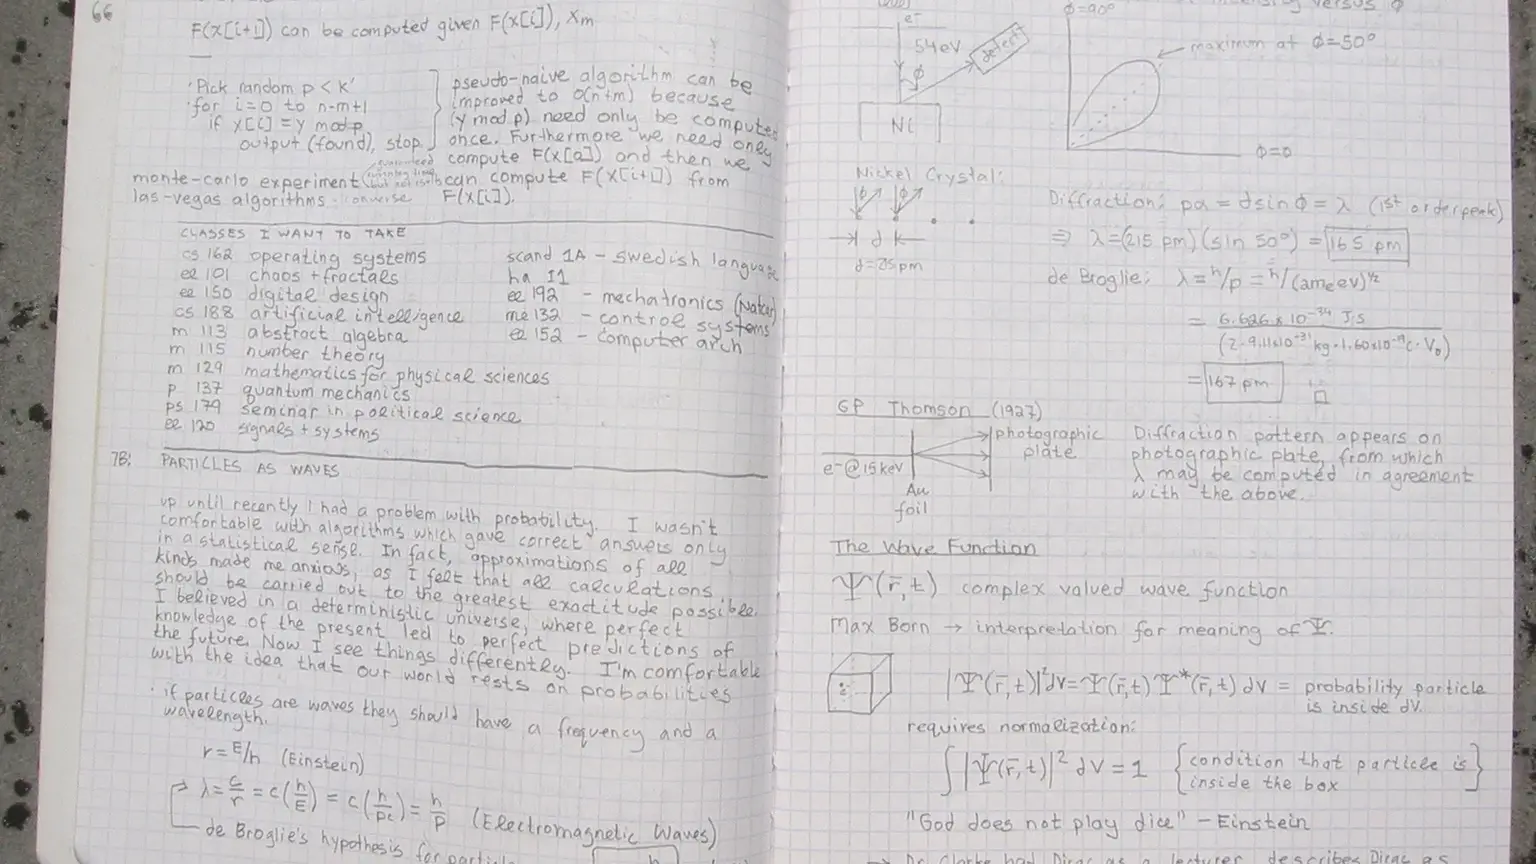 66
F(x[i+1]) can be computed given F(x[i]), xm
· Pick random p < k'
· for i=0 to n-m+1
if x[i] = y mod p
output (found), stop.
pseudo-naive algorithm can be
improved to O(n+m) because
(y mod p) need only be computed
once. Furthermore we need only
compute F(x[a]) and then we
can compute F(x[i+1]) from
F(x[i]).
monte-carlo experiment
las-vegas algorithms - converse
CLASSES I WANT TO TAKE
cs 162 operating systems
ee 101 chaos + fractals
ee 150 digital design
cs 188 artificial intelligence
m 113 abstract algebra
m 115 number theory
m 129 mathematics for physical sciences
p 137 quantum mechanics
ps 179 seminar in political science
ee 120 signals + systems
scand 1A - swedish language
ha 11
ee 192 - mechatronics
me 132 - control systems
ee 152 - computer arch
7B: PARTICLES AS WAVES
up until recently I had a problem with probability. I wasn't
comfortable with algorithms which gave correct answers only
in a statistical sense. In fact, approximations of all
kinds made me anxious, as I felt that all calculations
should be carried out to the greatest exactitude possible.
I believed in a deterministic universe, where perfect
knowledge of the present led to perfect predictions of
the future. Now I see things differently. I'm comfortable
with the idea that our world rests on probabilities
· if particles are waves they should have a frequency and a
wavelength.
r = E/h (Einstein)
λ = c/r = c(h/E) = c(h/pc) = h/p (Electromagnetic Waves)
de Broglie's hypothesis for
e-
54eV
ϕ
detect
Ni
ϕ=90°
versus ϕ
maximum at ϕ=50°
ϕ=0
Nickel Crystal:
ϕ ϕ
d
d=25pm
Diffraction: pa = d sin ϕ = λ (1st order peak)
⇒ λ=(215 pm)(sin 50°) = 165 pm
de Broglie: λ = h/p = h/(2meeV)^1/2
= 6.626 x 10^-34 J·S / (2·9.11x10^-31 kg·1.60x10^-19 C·V0)
= 167 pm
GP Thomson (1927)
e- @ 15keV
Au
foil
photographic
plate
Diffraction pattern appears on
photographic plate, from which
λ may be computed in agreement
with the above.
The Wave Function
Ψ(r̄,t) complex valued wave function
Max Born → interpretation for meaning of Ψ.
|Ψ(r̄,t)|²dV = Ψ(r̄,t) Ψ*(r̄,t) dV = probability particle
is inside dV.
requires normalization:
∫|Ψ(r̄,t)|² dV = 1 {condition that particle is
inside the box}
"God does not play dice" - Einstein
→ Dr Clarke had Dirac as a lecturer, describes Dirac as